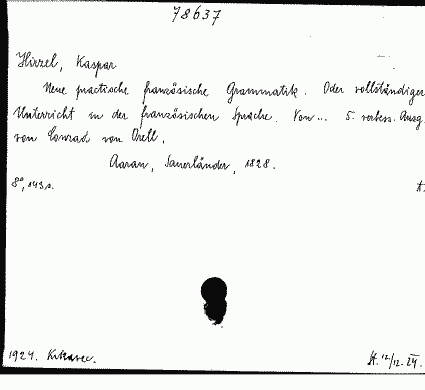 78637
Hirzel, Kaspar
Neue practische französische Grammatik. Oder vollständiger
Unterricht in der französischen Sprache. Von ... 5. verbess. Ausg.
von Conrad von Orell.
Aarau, Sauerländer, 1828.
8°, 143 s.
1924.
12/12. 24.